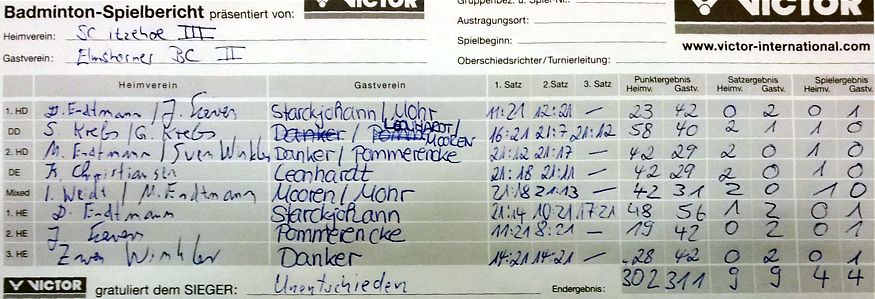 Badminton-Spielbericht präsentiert von: VICTOR
Heimverein: SC Itzehoe III
Gastverein: Elmshorner BC II
Austragungsort:
Spielbeginn: www.victor-international.com
Oberschiedsrichter/Turnierleitung:
Heimverein Gastverein 1. Satz 2.Satz 3. Satz Punktergebnis Satzergebnis Spielergebnis
Heimv. Gastv. Heimv. Gastv. Heimv. Gastv.
1. HD D. Endtmann / J. Starckjohann / Mohr 11:21 12:21 – 23 42 0 2 0 1
DD S. Krebs / G. Krebs Danker / LEONHARDT / MOOREN 16:21 21:7 21:12 58 40 2 1 1 0
2. HD M. Endtmann / Sven Winkler Danker / Pommerencke 21:12 21:17 – 42 29 2 0 1 0
DE K. Christiansen Leonhardt 21:18 21:11 – 42 29 2 0 1 0
Mixed I. Weidt / M. Endtmann Mooren / Mohr 21:18 21:13 – 42 31 2 0 1 0
1. HE D. Endtmann Starckjohann 21:14 10:21 17:21 48 56 1 2 0 1
2. HE J. Pommerencke 11:21 8:21 – 19 42 0 2 0 1
3. HE Sven Winkler Danker 14:21 14:21 – 28 42 0 2 0 1
VICTOR gratuliert dem SIEGER: Unentschieden Endergebnis: 302 311 9 9 4 4